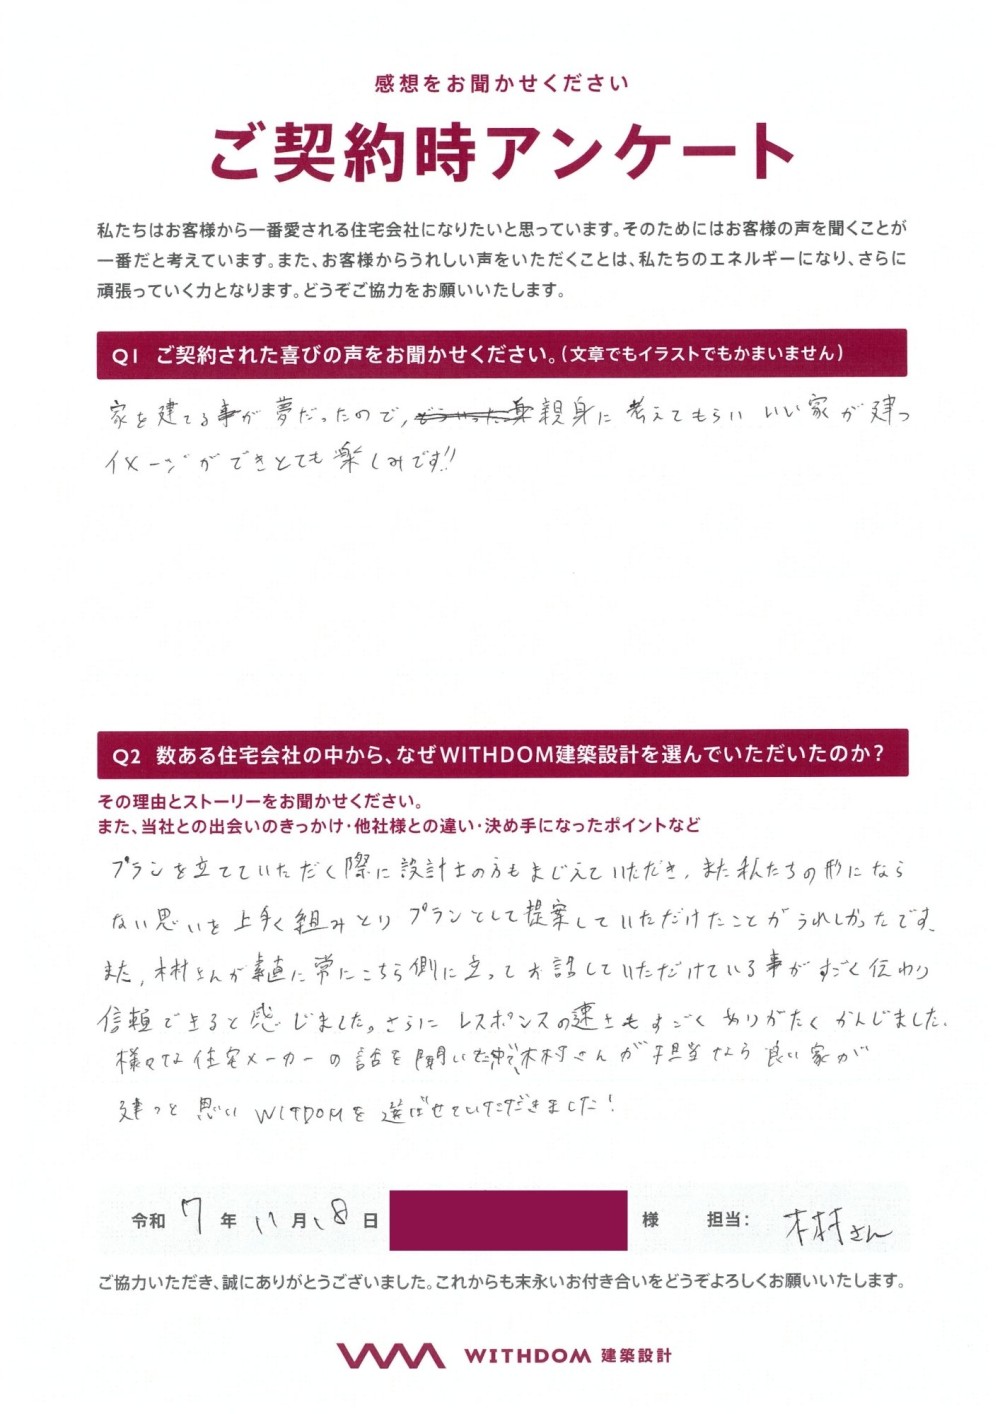 感想をお聞かせください
ご契約時アンケート
私たちはお客様から一番愛される住宅会社になりたいと思っています。そのためにはお客様の声を聞くことが
一番だと考えています。また、お客様からうれしい声をいただくことは、私たちのエネルギーになり、さらに
頑張っていく力となります。どうぞご協力をお願いいたします。
Q1 ご契約された喜びの声をお聞かせください。(文章でもイラストでもかまいません)
家を建てる事が夢だったので、親身に考えてもらいいい家が建つ
イメージができとても楽しみです!!
Q2 数ある住宅会社の中から、なぜWITHDOM建築設計を選んでいただいたのか?
その理由とストーリーをお聞かせください。
また、当社との出会いのきっかけ・他社様との違い・決め手になったポイントなど
プランを立てていただく際に設計士の方もまじえていただき、また私たちの形になら
ない思いを上手く組みとりプランとして提案していただけたことがうれしかったです、
また、木村さんが素直に常にこちら側に立ってお話していただけている事がすごく伝わり
信頼できると感じました。さらにレスポンスの速さもすごくありがたくかんじました、
様々な住宅メーカーの話を聞いた中で、木村さんが担当なら良い家が
建つと思いWITDOMを選ばせていただきました!
令和 7 年 11 月 18 日 様 担当: 木村さん
ご協力いただき、誠にありがとうございました。これからも末永いお付き合いをどうぞよろしくお願いいたします。
WITHDOM 建築設計